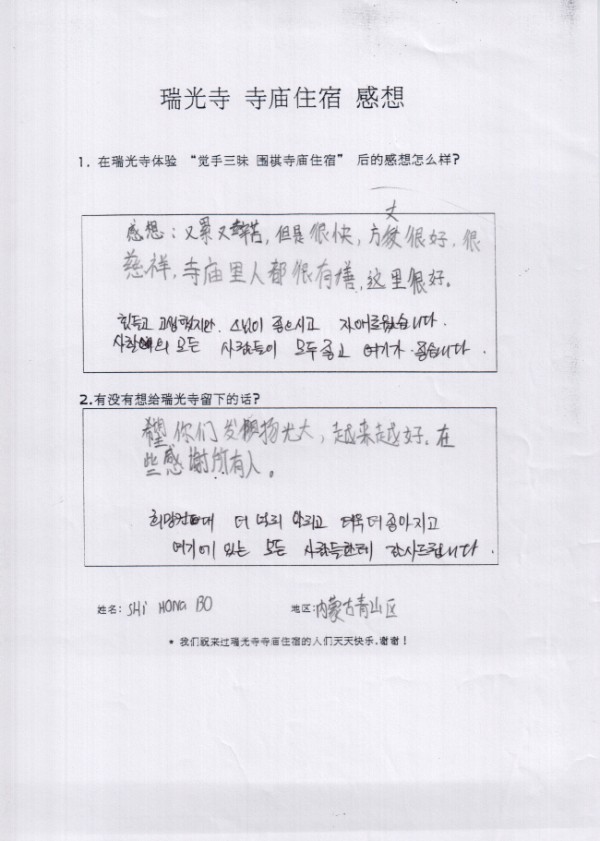 瑞光寺 寺庙住宿 感想
1. 在瑞光寺体验 “觉手三昧 围棋寺庙住宿” 后的感想怎么样?
丈
感想：又累又辛苦，但是很快，方很好，很
慈祥，寺庙里人都很有善，这里很好。
힘들고 고생했지만, 스님이 좋으시고 자애로웠습니다.
사찰의 모든 사람들이 모두 좋고 여기가 좋습니다.
2.有没有想给瑞光寺留下的话?
希望你们发扬光大，越来越好，在
些感谢所有人。
희망컨대 더 널리 알리고 더욱 더 좋아지고
여기에 있는 모든 사람들한테 감사드립니다.
姓名: SHI HONG BO 地区: 内蒙古青山区
* 我们祝来过瑞光寺寺庙住宿的人们天天快乐.谢谢！